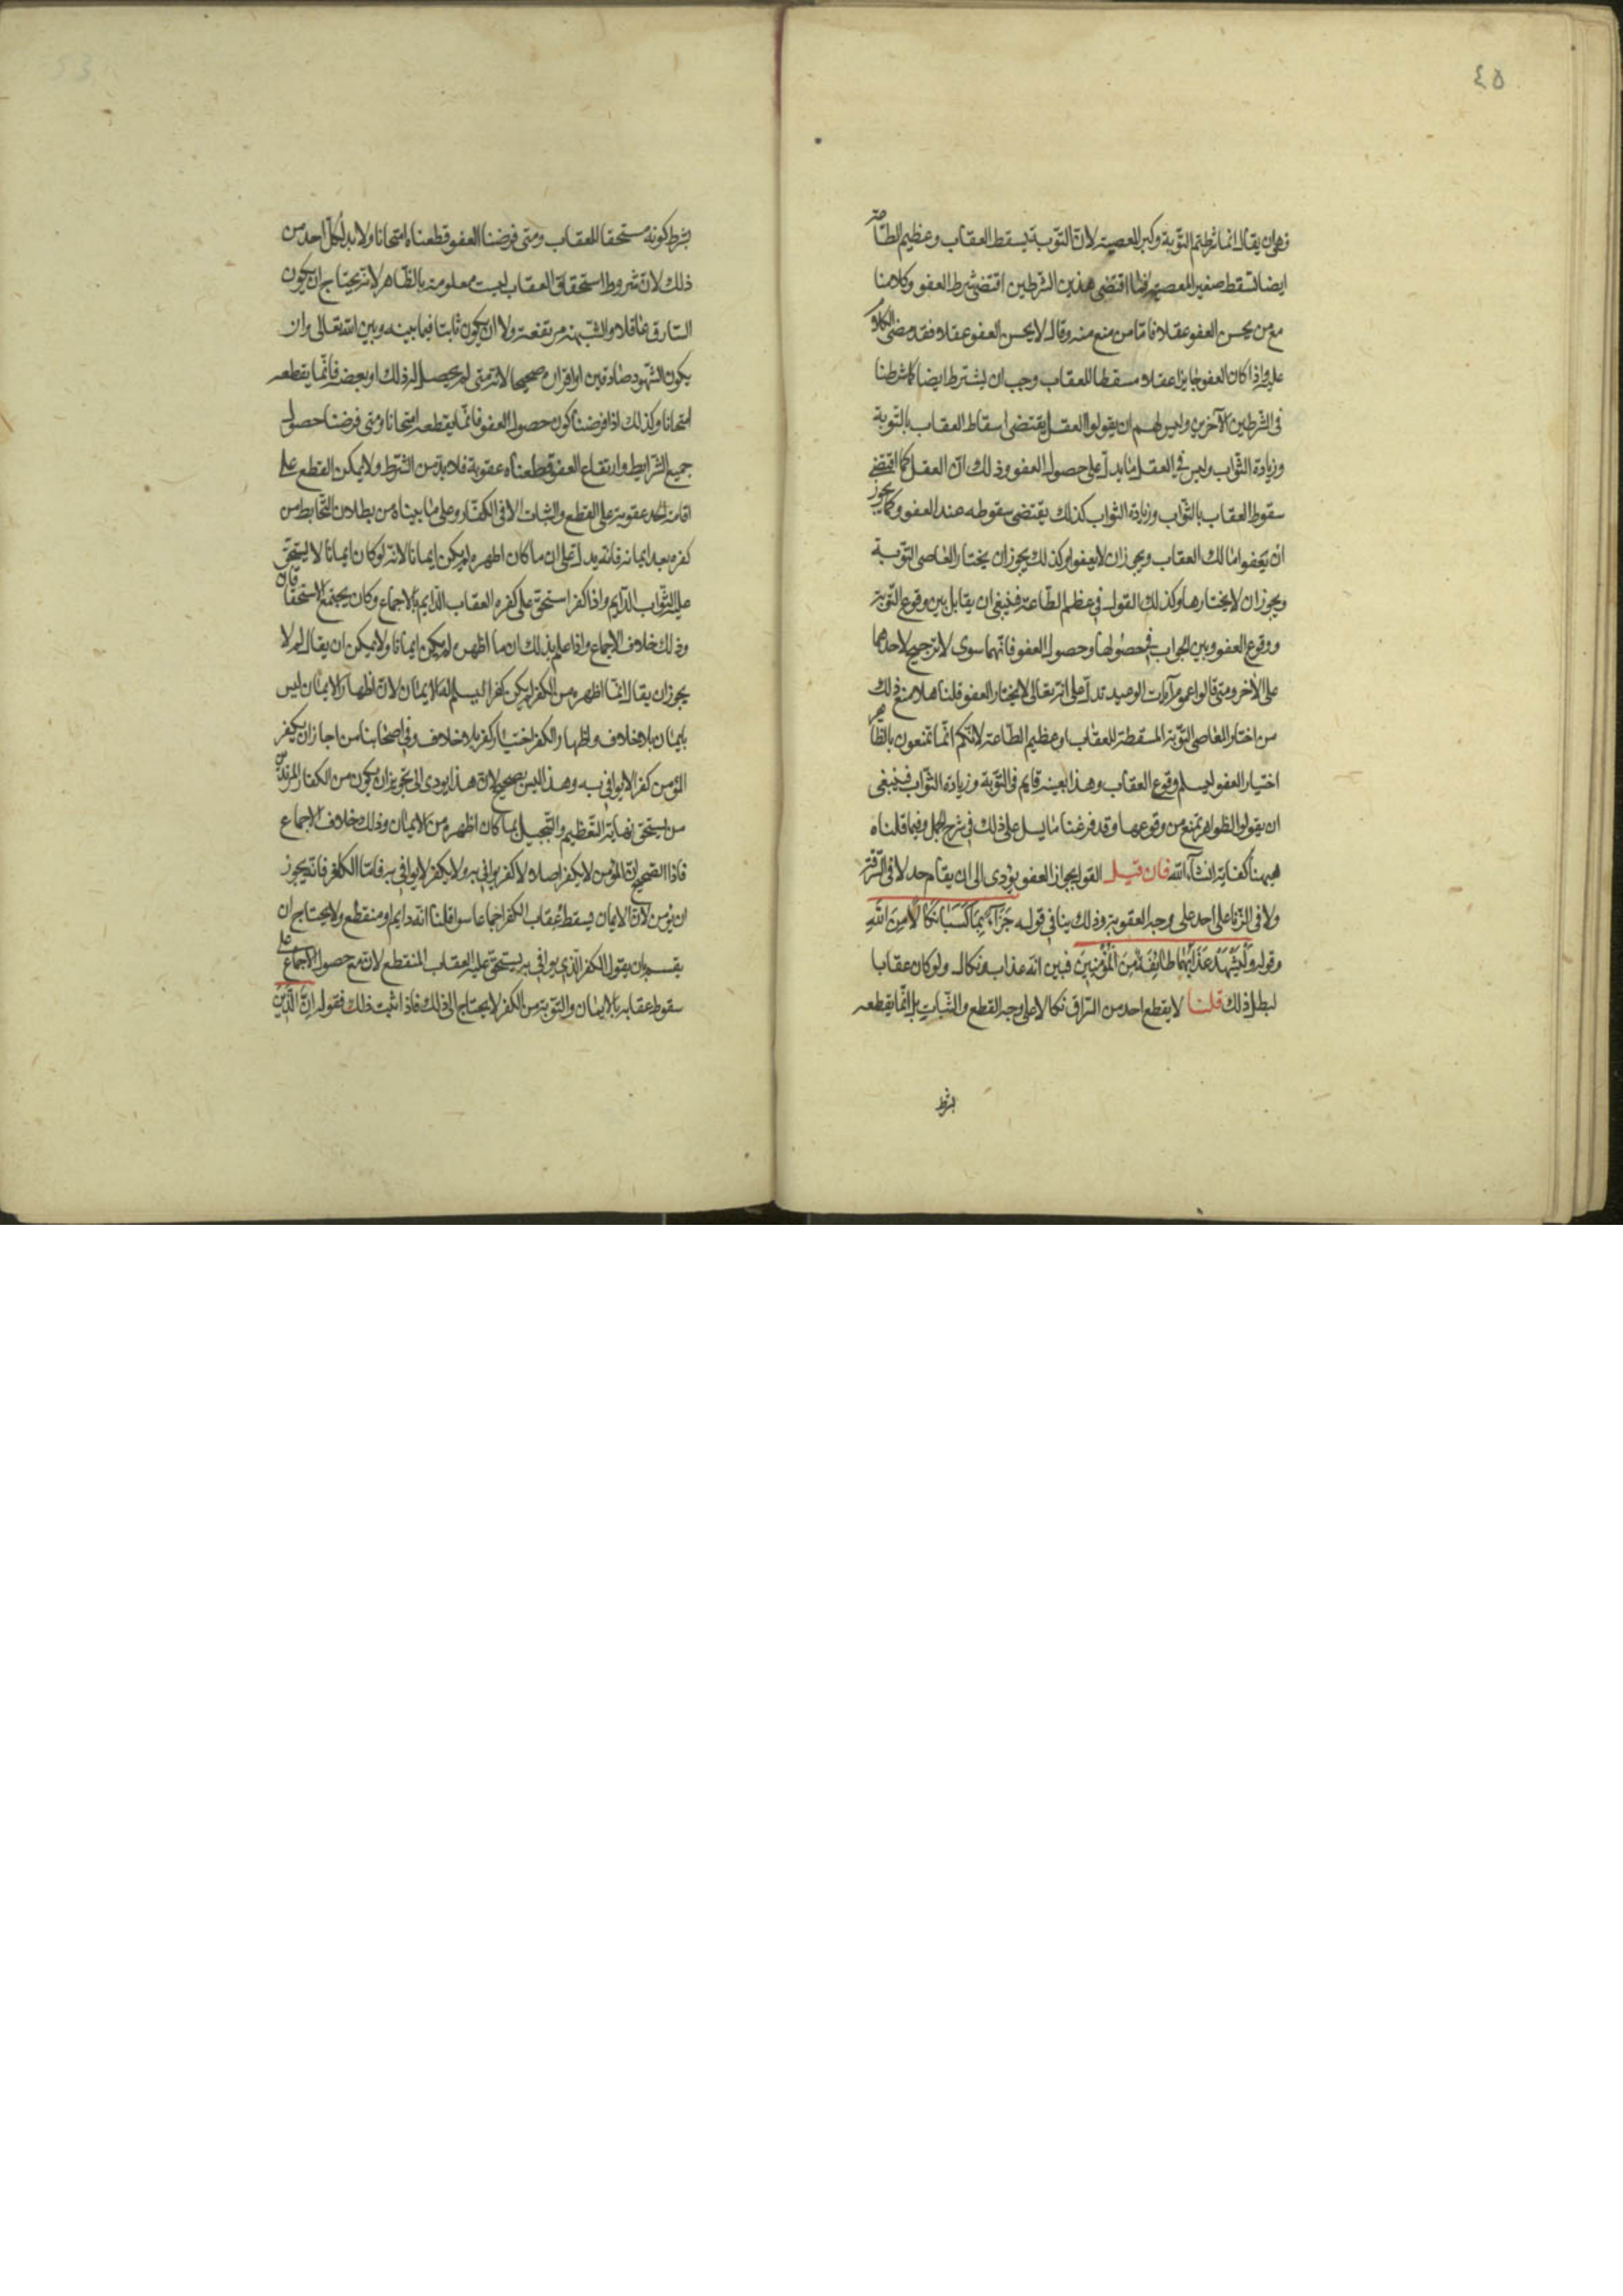 ٤٥
فهو ان يقال انما شرطتم التوبة وكبر المعصية لان التوبة يسقط العقاب وعظيم الطاعة
ايضا تسقط صغير المعصية فما اقتضى هذين الشرطين اقتضى شرط العفو وكلامنا
مع من يحسن العفو عقلا فاما من منع منه وقال لا يحسن العفو عقلا فقد مضى الكلام
عليه واذا كان العفو جايزا عقلا مسقطا للعقاب وجب ان يشترط ايضا كما شرطنا
فى الشرطين الآخرين وليس لهم ان يقولوا العقل يقتضى اسقاط العقاب بالتوبة
وزيادة الثواب وليس في العقل ما يدل على حصول العفو وذلك ان العقل كما اقتضى
سقوط العقاب بالثواب وزيادة الثواب كذلك يقتضى سقوطه عند العفو وكما يجوز
ان يعفوا مالك العقاب ويجوز ان لا يعفوا وكذلك يجوز ان يختار العاصى التوبة
ويجوز ان لا يختارها وكذلك القول فى عظيم الطاعة فينبغى ان يقابل بين وقوع التوبة
ووقوع العفو وبين الجواب في حصولها وحصول العفو فانهما سوى لا ترجيح لاحدهما
على الآخر ومتى قالوا عموم آيات الوعيد تدل على انه تعالى لا يختار العفو قلنا هلا منع ذلك
من اختار العاصى التوبة المسقطة للعقاب وعظيم الطاعة لانكم انما تمنعون بالظاهر
اختيار العفو ليسلم وقوع العقاب وهذا بعينه قايم فى التوبة وزيادة الثواب فينبغى
ان يقولوا الظواهر تمنع من وقوعها وقد فرغنا ما يسل على ذلك فى شرح الجمل وفيما قلناه
هيهنا كفاية انشاء الله فان قيل القول بجواز العفو يؤدى الى ان يقام حد لا فى السرقة
ولا فى الزنا على احد على وجه العقوبة وذلك ينافى قوله جَزَاءً بِمَا كَسَبَا نَكَالًا مِنَ اللهِ
وقوله وَلْيَشْهَدْ عَذَابَهُمَا طَائِفَةٌ مِنَ الْمُؤْمِنِينَ فبين انه عذاب ونكال ولو كان عقابا
لبطل ذلك قلنا لا يقطع احد من السراق نكالا على وجه القطع والثبات بل انما يقطعه
بشرط
بشرط كونه مستحقا للعقاب ومتى فرضنا العفو قطعناه امتحانا ولا بد لكل احد من
ذلك لان شروط استحقاق العقاب ليست معلومة بالظاهر لانه يحتاج ان يكون
السارق عاقلا والشبهة مرتفعة ولا ان يكون تائبا فيما بينه وبين الله تعالى وان
يكون الشهود صادقين او اقراره صحيحا لانه متى لم يحصل له ذلك او بعضه فانما يقطعه
امتحانا وكذلك اذا فرضنا كون حصول العفو فانما يقطعه امتحانا ومتى فرضنا حصول
جميع الشرايط وارتفاع العفو قطعناه عقوبة فلا بد من الشرط ولا يمكن القطع على
اقامة الحد عقوبة على القطع والثبات الا فى الكفار وعلى ما بيناه من بطلان التحابط من
كفر بعد ايمانه فانه يدل على ان ما كان اظهره لم يكن ايمانا لانه لو كان ايمانا لا يستحق
عليه الثواب الدايم واذا كفر استحق على كفره العقاب الدايم بالاجماع وكان يجتمع الاستحقاقان
وذلك خلاف الاجماع واذا علم بذلك ان ما اظهره لم يكن ايمانا ولا يمكن ان يقال لم لا
يجوز ان يقال انما اظهره من الكفر لم يكن كفرا ليسلم له الايمان لان اظهار الايمان ليس
بايمان بلا خلاف واظهار الكفر اختيار كفر بلا خلاف وفى اصحابنا من اجاز ان يكفر
المؤمن كفرا لا يوافى به وهذا ليس بصحيح لان هذا يودى الى تجويز ان يكون من الكفار المرتدين
من يستحق نهاية التعظيم والتبجيل بما كان اظهره من الايمان وذلك خلاف الاجماع
فاذا الصحيح ان المؤمن لا يكفر اصلا لا كفر يوافى به ولا يكفر لا يوافى به فاما الكافر فانه يجوز
ان يؤمن لان الايمان يسقط عقاب الكفر اجماعا سوا قلنا انه دايم او منقطع ولا يحتاج ان
يقسم بان يقول الكفر الذى يوافى به يستحق عليه العقاب المنقطع لان مع حصول الاجماع على
سقوط عقابه بالايمان والتوبة من الكفر لا يحتاج الى ذلك فاذا ثبت ذلك فقوله إِنَّ الَّذِينَ